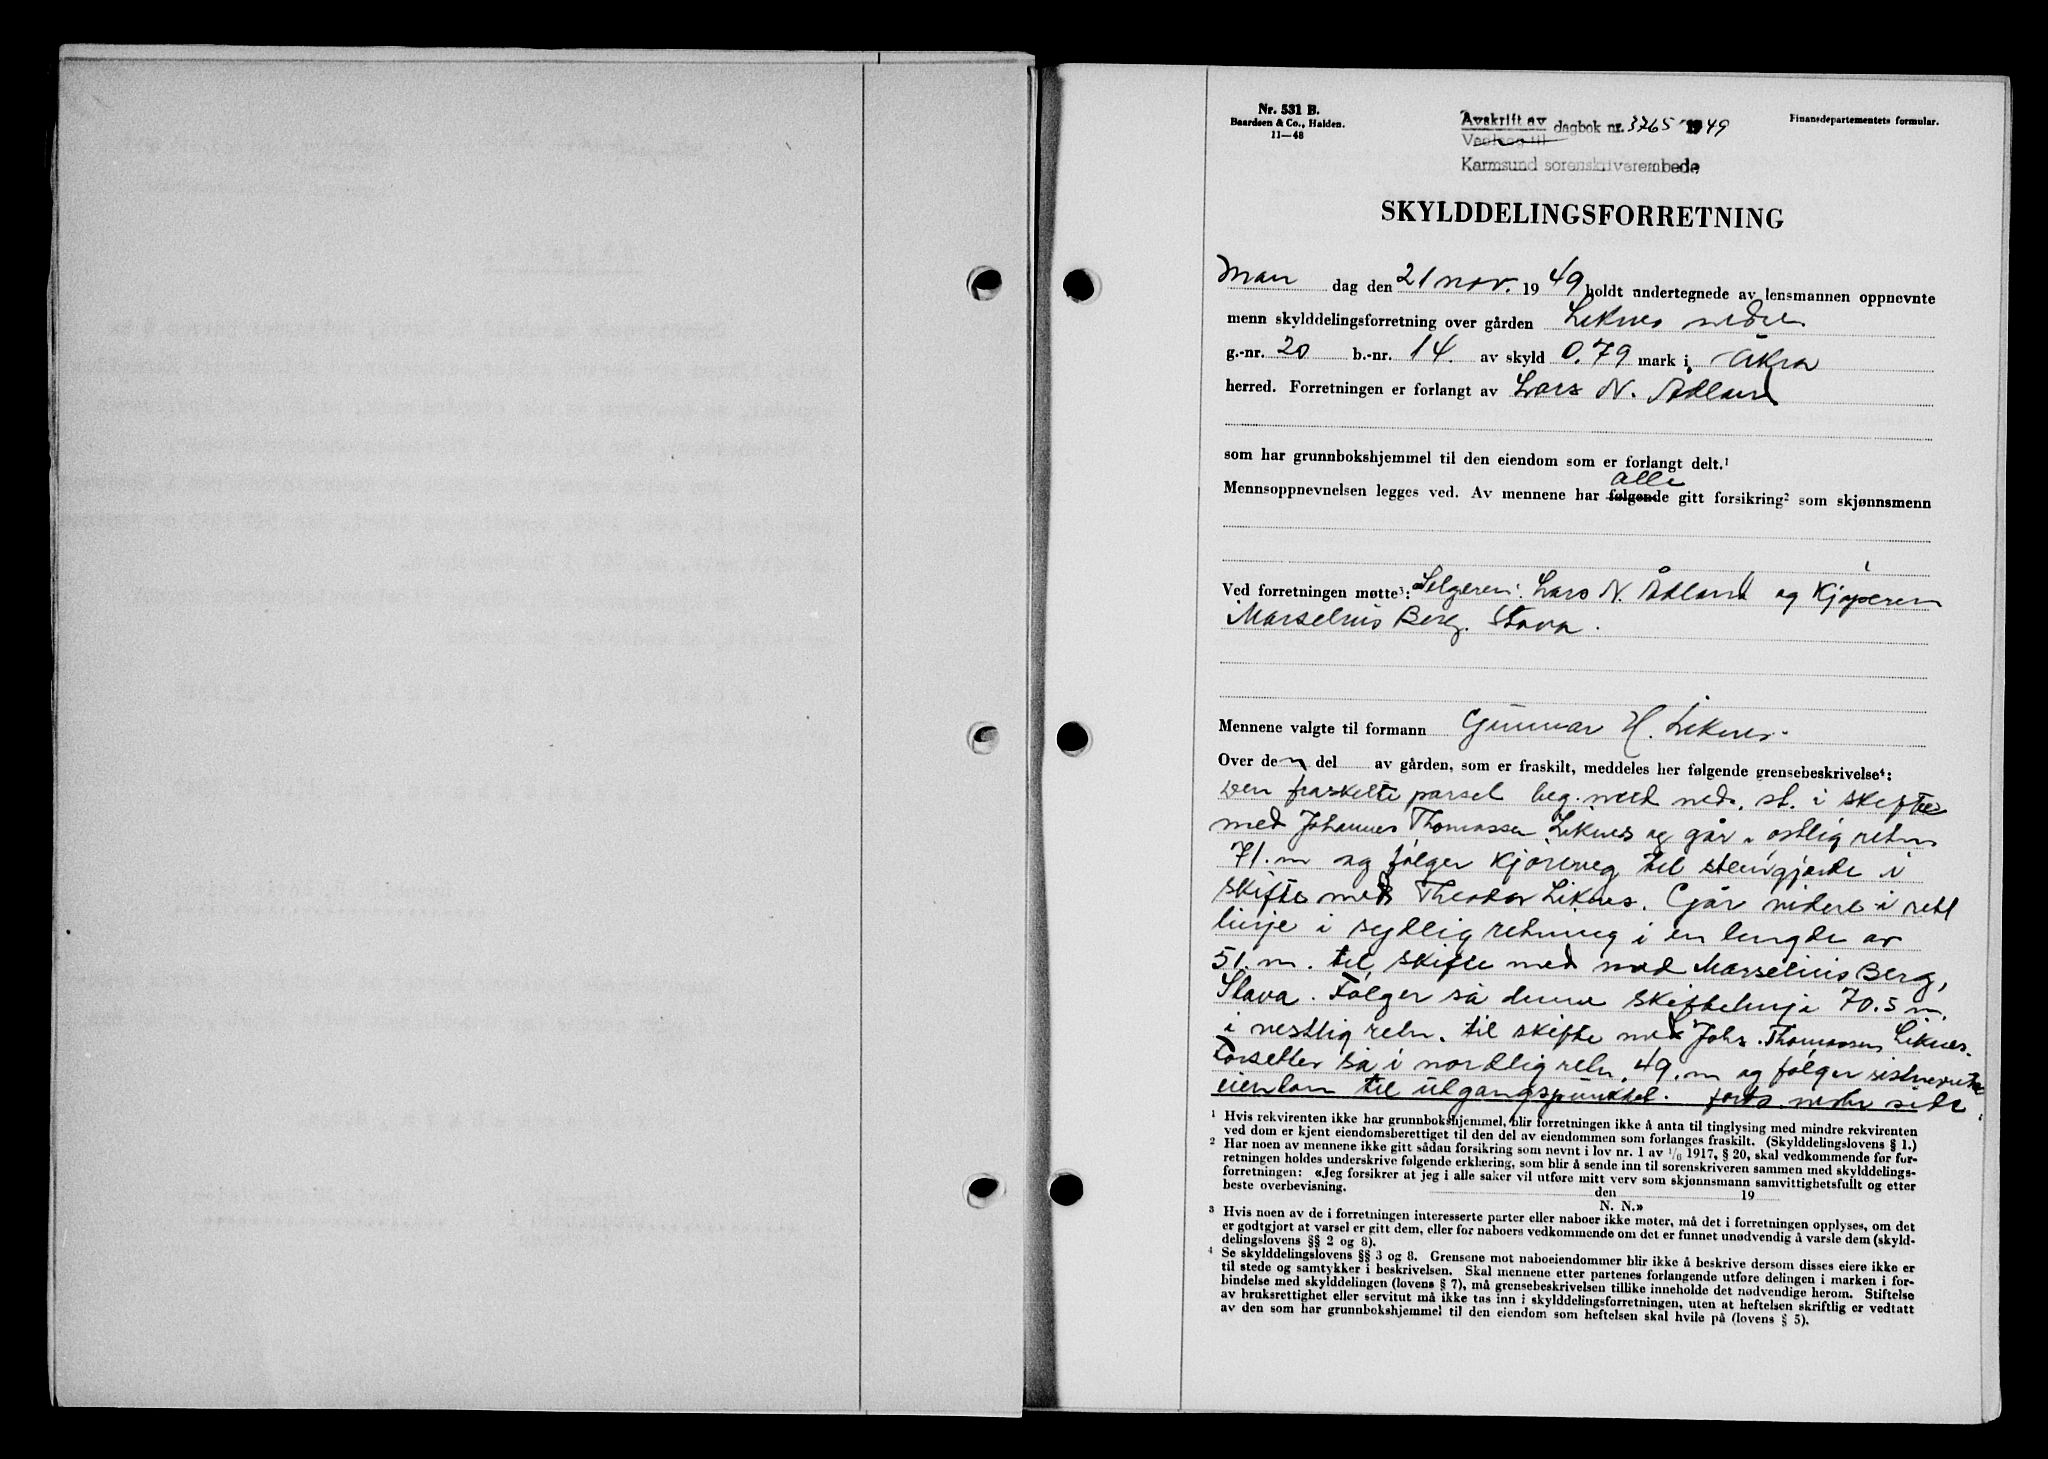 Nr. 531 B.
Baardsen & Co., Halden.
11—48
Avskrift av
Vedlegg til
dagbok nr. 3765 1949
Karmsund sorenskriverembede
Finansdepartementets formular.
SKYLDDELINGSFORRETNING
Man dag den 21 nov. 1949 holdt undertegnede av lensmannen oppnevnte
menn skylddelingsforretning over gården Liknes nedre
g.-nr. 20 b.-nr. 14. av skyld 0.79 mark i Åkra
herred. Forretningen er forlangt av Lars N. Ådland
som har grunnbokshjemmel til den eiendom som er forlangt delt.¹
alle
Mennsoppnevnelsen legges ved. Av mennene har følgende gitt forsikring² som skjønnsmenn
Ved forretningen møtte³: Selgeren: Lars N. Ådland og Kjøperen
Marselius Berg. Stava.
Mennene valgte til formann Gunnar H. Liknes.
Over den del av gården, som er fraskilt, meddeles her følgende grensebeskrivelse⁴:
Den fraskilte parsel beg. med neds. st. i skifte
med Johannes Thomassen Liknes og går i østlig retn
71. m og følger kjøreveg til steingjerde i
skifte med Theodor Liknes. Går videre i rett
linje i sydlig retning i en lengde av
51. m. til skifte med med Marselius Berg,
Stava. Følger så denne skiftelinje 70.5 m.
i vestlig retn. til skifte med Johs. Thomassen Liknes.
Forsetter så i nordlig retn. 49. m og følger sistnevnte
eiendom til utgangspunktet. forts. neste side.
¹ Hvis rekvirenten ikke har grunnbokshjemmel, blir forretningen ikke å anta til tinglysing med mindre rekvirenten
ved dom er kjent eiendomsberettiget til den del av eiendommen som forlanges fraskilt. (Skylddelingslovens § 1.)
² Har noen av mennene ikke gitt sådan forsikring som nevnt i lov nr. 1 av 1/6 1917, § 20, skal vedkommende før for-
retningen holdes underskrive følgende erklæring, som blir å sende inn til sorenskriveren sammen med skylddelings-
forretningen: «Jeg forsikrer at jeg i alle saker vil utføre mitt verv som skjønnsmann samvittighetsfullt og etter
beste overbevisning. den 19
N. N.»
³ Hvis noen av de i forretningen interesserte parter eller naboer ikke møter, må det i forretningen opplyses, om det
er godtgjort at varsel er gitt dem, eller for naboers vedkommende om det er funnet unødvendig å varsle dem (skyld-
delingslovens §§ 2 og 8).
⁴ Se skylddelingslovens §§ 3 og 8. Grensene mot naboeiendommer blir ikke å beskrive dersom disses eiere ikke er
til stede og samtykker i beskrivelsen. Skal mennene etter partenes forlangende utføre delingen i marken i for-
bindelse med skylddelingen (lovens § 7), må grensebeskrivelsen tillike inneholde det nødvendige herom. Stiftelse
av bruksrettighet eller servitut må ikke tas inn i skylddelingsforretningen, uten at heftelsen skriftlig er vedtatt
av den som har grunnbokshjemmel til den eiendom som heftelsen skal hvile på (lovens § 5).